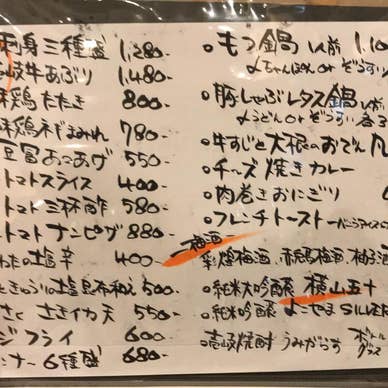 刺身三種盛 1,380-
岐牛あぶり 1,480-
鶏たたき 800-
鶏ネギまみれ 780-
豆冨あつあげ 550-
トマトスライス 400-
トマト三杯酢 580-
トマトナンピザ 880-
わたの塩辛 400-
きゅうの塩昆布和え 500-
さく さきイカ天 550-
ジフライ 600-
ンナー6種盛 680-
もつ鍋 1人前 1,1
ちゃんぽん or ぞうすい
豚しゃぶレタス鍋 1人前
うどん or ぞうすい 各
牛すじと大根のおでん
チーズ焼きカレー
肉巻きおにぎり
フレンチトースト
梅酒
彩煌梅酒、赤馬梅酒、柚子酒
純米大吟醸 横山五十
純米吟醸 よこやまSILVER
壱岐焼酎 うみがらす ボトル
グラス